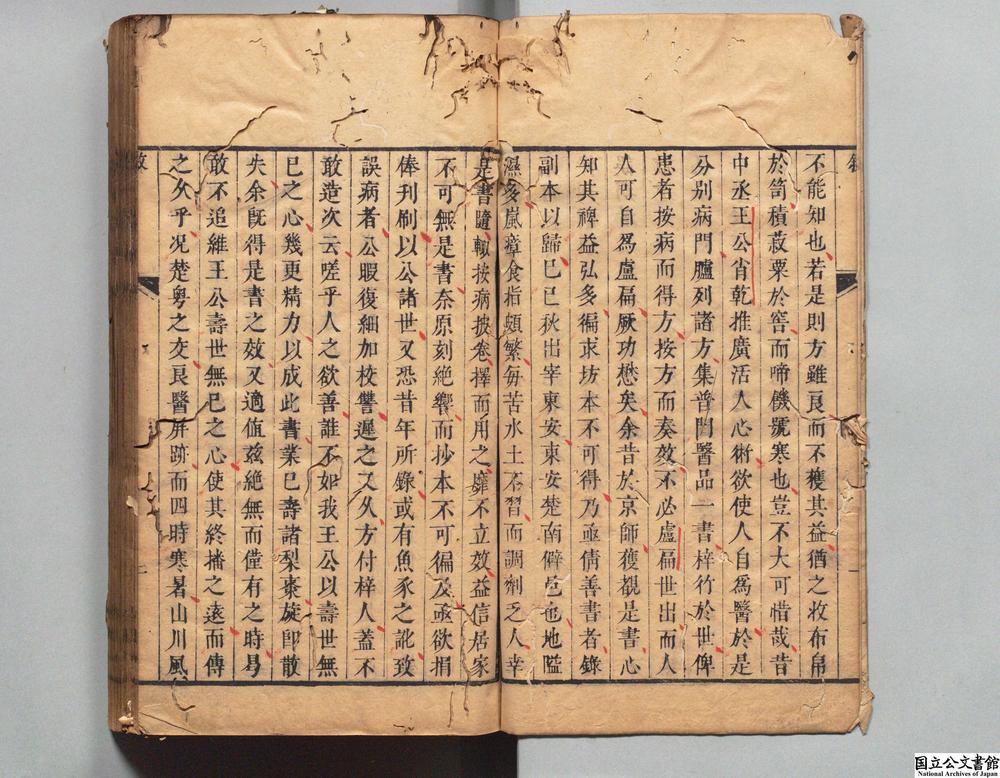 不能知也若是則方雖良而不穫其益猶之收布帛
於笥積菽粟於窖而啼饑號寒也豈不大可惜哉昔
中丞王公肯乾推廣活人心術欲使人自為醫於是
分別病門臚列諸方集普門醫品一書梓竹於世俾
患者按病而得方按方而奏效不必盧扁世出而人
人可自為盧扁厥功懋矣余昔於京師獲覩是書心
知其裨益弘多徧求坊本不可得乃亟倩善書者錄
副本以歸巳巳秋出宰東安東安楚南僻邑也地隘
濕多嵐瘴食指頗繁每苦水土不習而調劑乏人幸
是書隨轍按病披卷擇而用之靡不立效益信居家
不可無是書奈原刻絕響而抄本不可徧及亟欲捐
俸刋刷以公諸世又恐昔年所錄或有魚豕之訛致
誤病者公暇復細加校讐遲之又久方付梓人蓋不
敢造次云嗟乎人之欲善誰不如我王公以壽世無
巳之心幾更精力以成此書業巳壽諸梨棗旋卽散
失余旣得是書之效又適值玆絕無而僅有之時曷
敢不追維王公壽世無巳之心使其終播之遠而傳
之久乎况楚粤之交良醫屏跡而四時寒暑山川風
国立公文書館
National Archives of Japan